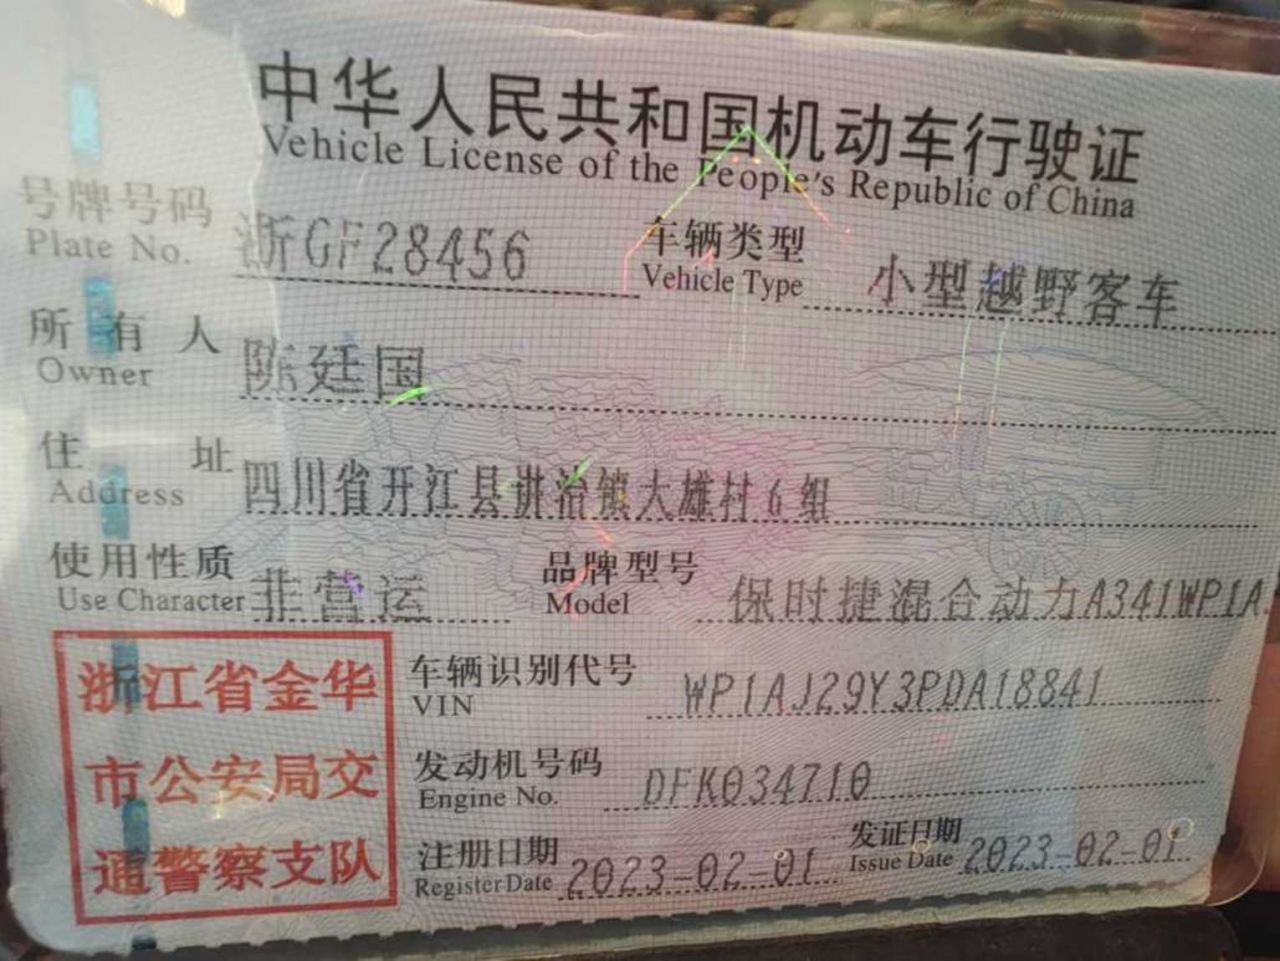 中华人民共和国机动车行驶证
Vehicle License of the People's Republic of China
号牌号码 浙GF28456 车辆类型 小型越野客车
Plate No. Vehicle Type
所有人 陈廷国
Owner
住址 四川省开江县讲治镇大雄村6组
Address
使用性质 非营运 品牌型号 保时捷混合动力A341WP1A
Use Character Model
浙江省金华
市公安局交
通警察支队
车辆识别代号 WP1AJ29Y3PDA18841
VIN
发动机号码 DFK034710
Engine No.
注册日期 2023-02-01 发证日期 2023-02-01
Register Date Issue Date